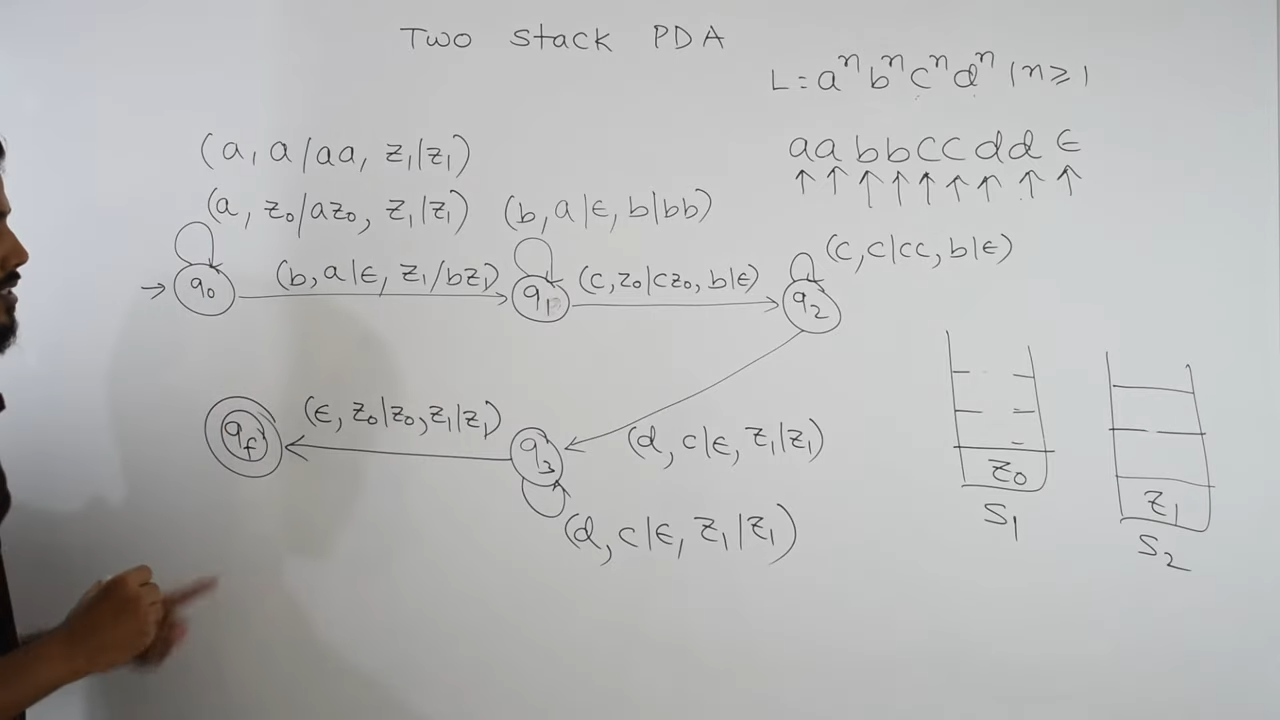 Two Stack PDA
L = aⁿ bⁿ cⁿ dⁿ | n ≥ 1
(a, a/aa, z₁|z₁)
aabbccdd ϵ
↑ ↑ ↑ ↑ ↑ ↑ ↑ ↑ ↑
(a, z₀/az₀, z₁|z₁)
(b, a|ϵ, b|bb)
(c, c|cc, b|ϵ)
→ q₀
(b, a|ϵ, z₁/bz₁)
q₁
(c, z₀|cz₀, b|ϵ)
q₂
qf
(ϵ, z₀|z₀, z₁|z₁)
q₃
(d, c|ϵ, z₁|z₁)
(d, c|ϵ, z₁|z₁)
z₀
S₁
z₁
S₂